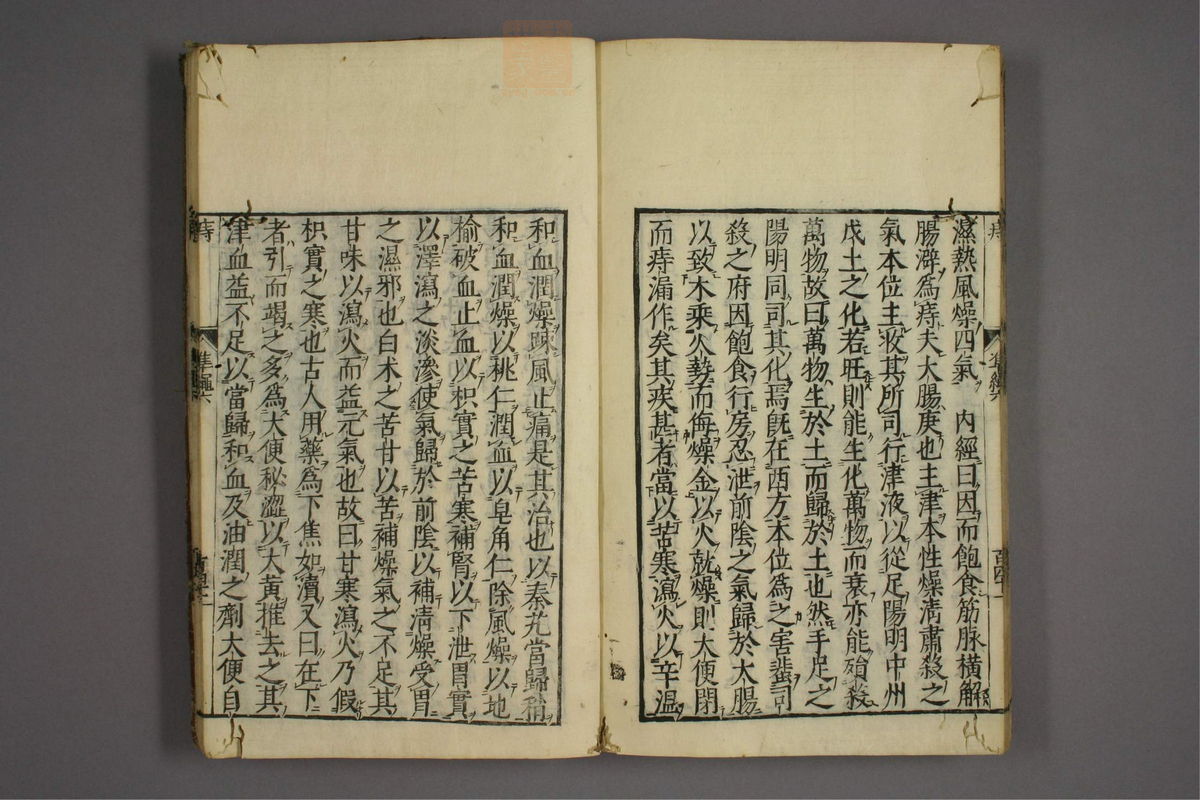 濕熱風燥四氣 內經曰因而飽食筋脉橫解
腸澼爲痔夫大腸庚也主津本性燥淸肅殺之
氣本位主收其所司行津液以從足陽明中州
戊土之化若旺則能生化萬物而衰亦能殞殺
萬物故曰萬物生於土而歸於土也然手足之
陽明同司其化焉旣在西方本位爲之害蜚司
殺之府因飽食行房忍泄前陰之氣歸於大腸
以致木乘火勢而侮燥金以火就燥則大便閉
而痔漏作矣其疾甚者當以苦寒瀉火以辛溫
和血潤燥踈風止痛是其治也以秦艽當歸稍
和血潤燥以桃仁潤血以皂角仁除風燥以地
榆破血止血以枳實之苦寒補腎以下泄胃實
以澤瀉之淡滲使氣歸於前陰以補淸燥受胃
之濕邪也白朮之苦甘以苦補燥氣之不足其
甘味以瀉火而益元氣也故曰甘寒瀉火乃假
枳實之寒也古人用藥爲下焦如瀆又曰在下
者引而竭之多爲大便秘澀以大黃推去之其
津血益不足以當歸和血及油潤之劑大便自
痔
準繩六